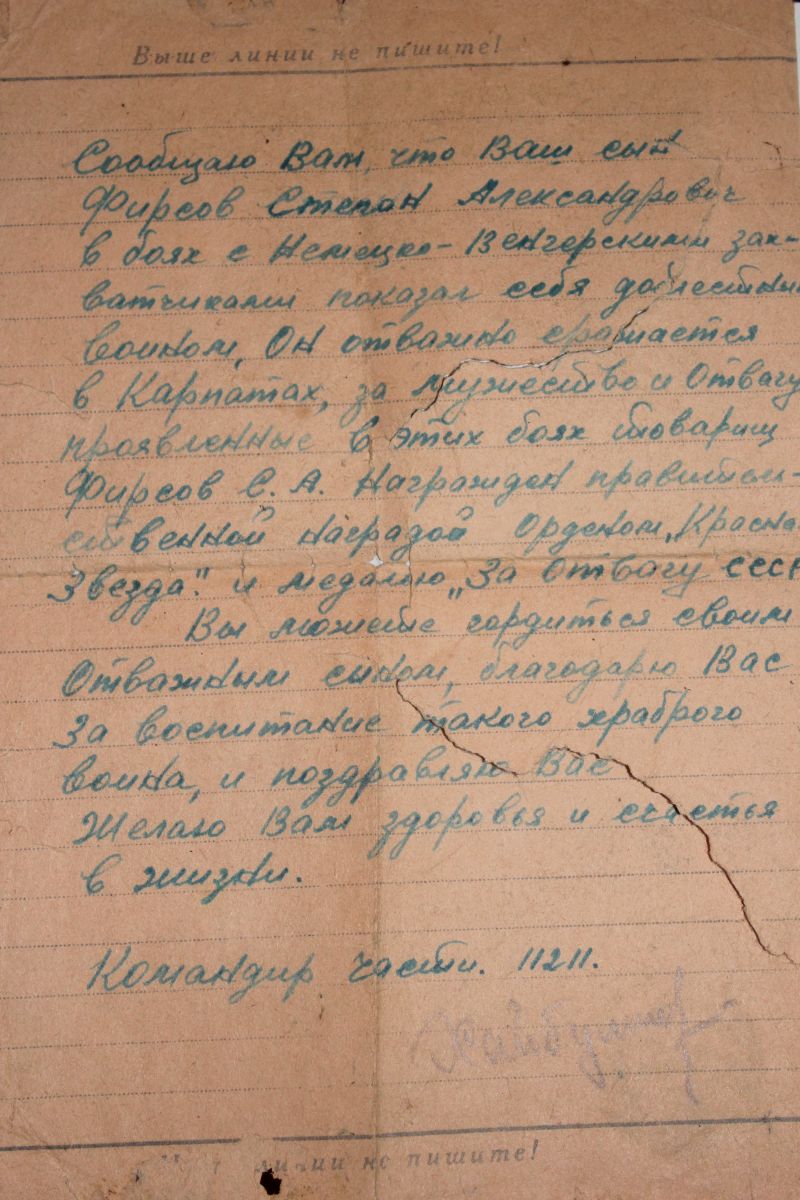 Выше линии не пишите!
Сообщаю Вам, что Ваш сын
Фирсов Степан Александрович
в боях с Немецко-Венгерскими зах-
ватчиками показал себя доблестным
воином, Он отважно сражается
в Карпатах, за мужество и Отвагу
проявленные в этих боях товарищ
Фирсов С. А. Награжден правитель-
ственной наградой Орденом „Красна
Звезда". и медалю „За Отвагу СССР
Вы можете гордиться своим
Отважным сыном, благодарю Вас
За воспитание такого храброго
воина, и поздравляю Вас
Желаю Вам здоровья и счастья
в жизни.
Командир части. 11211.
линии не пишите!